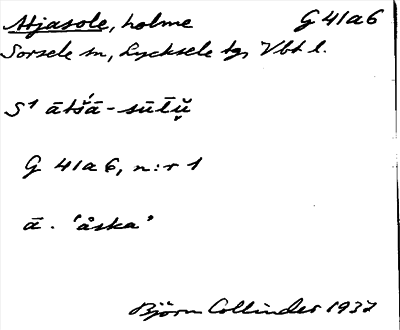 Atjasole, holme G 41a6
Sorsele sn, Lycksele tg, Vbt l.
S¹ ātšā́-sūlŭ̬
G 41a6, n:r 1
ā. 'åska'
Björn Collinder 1937